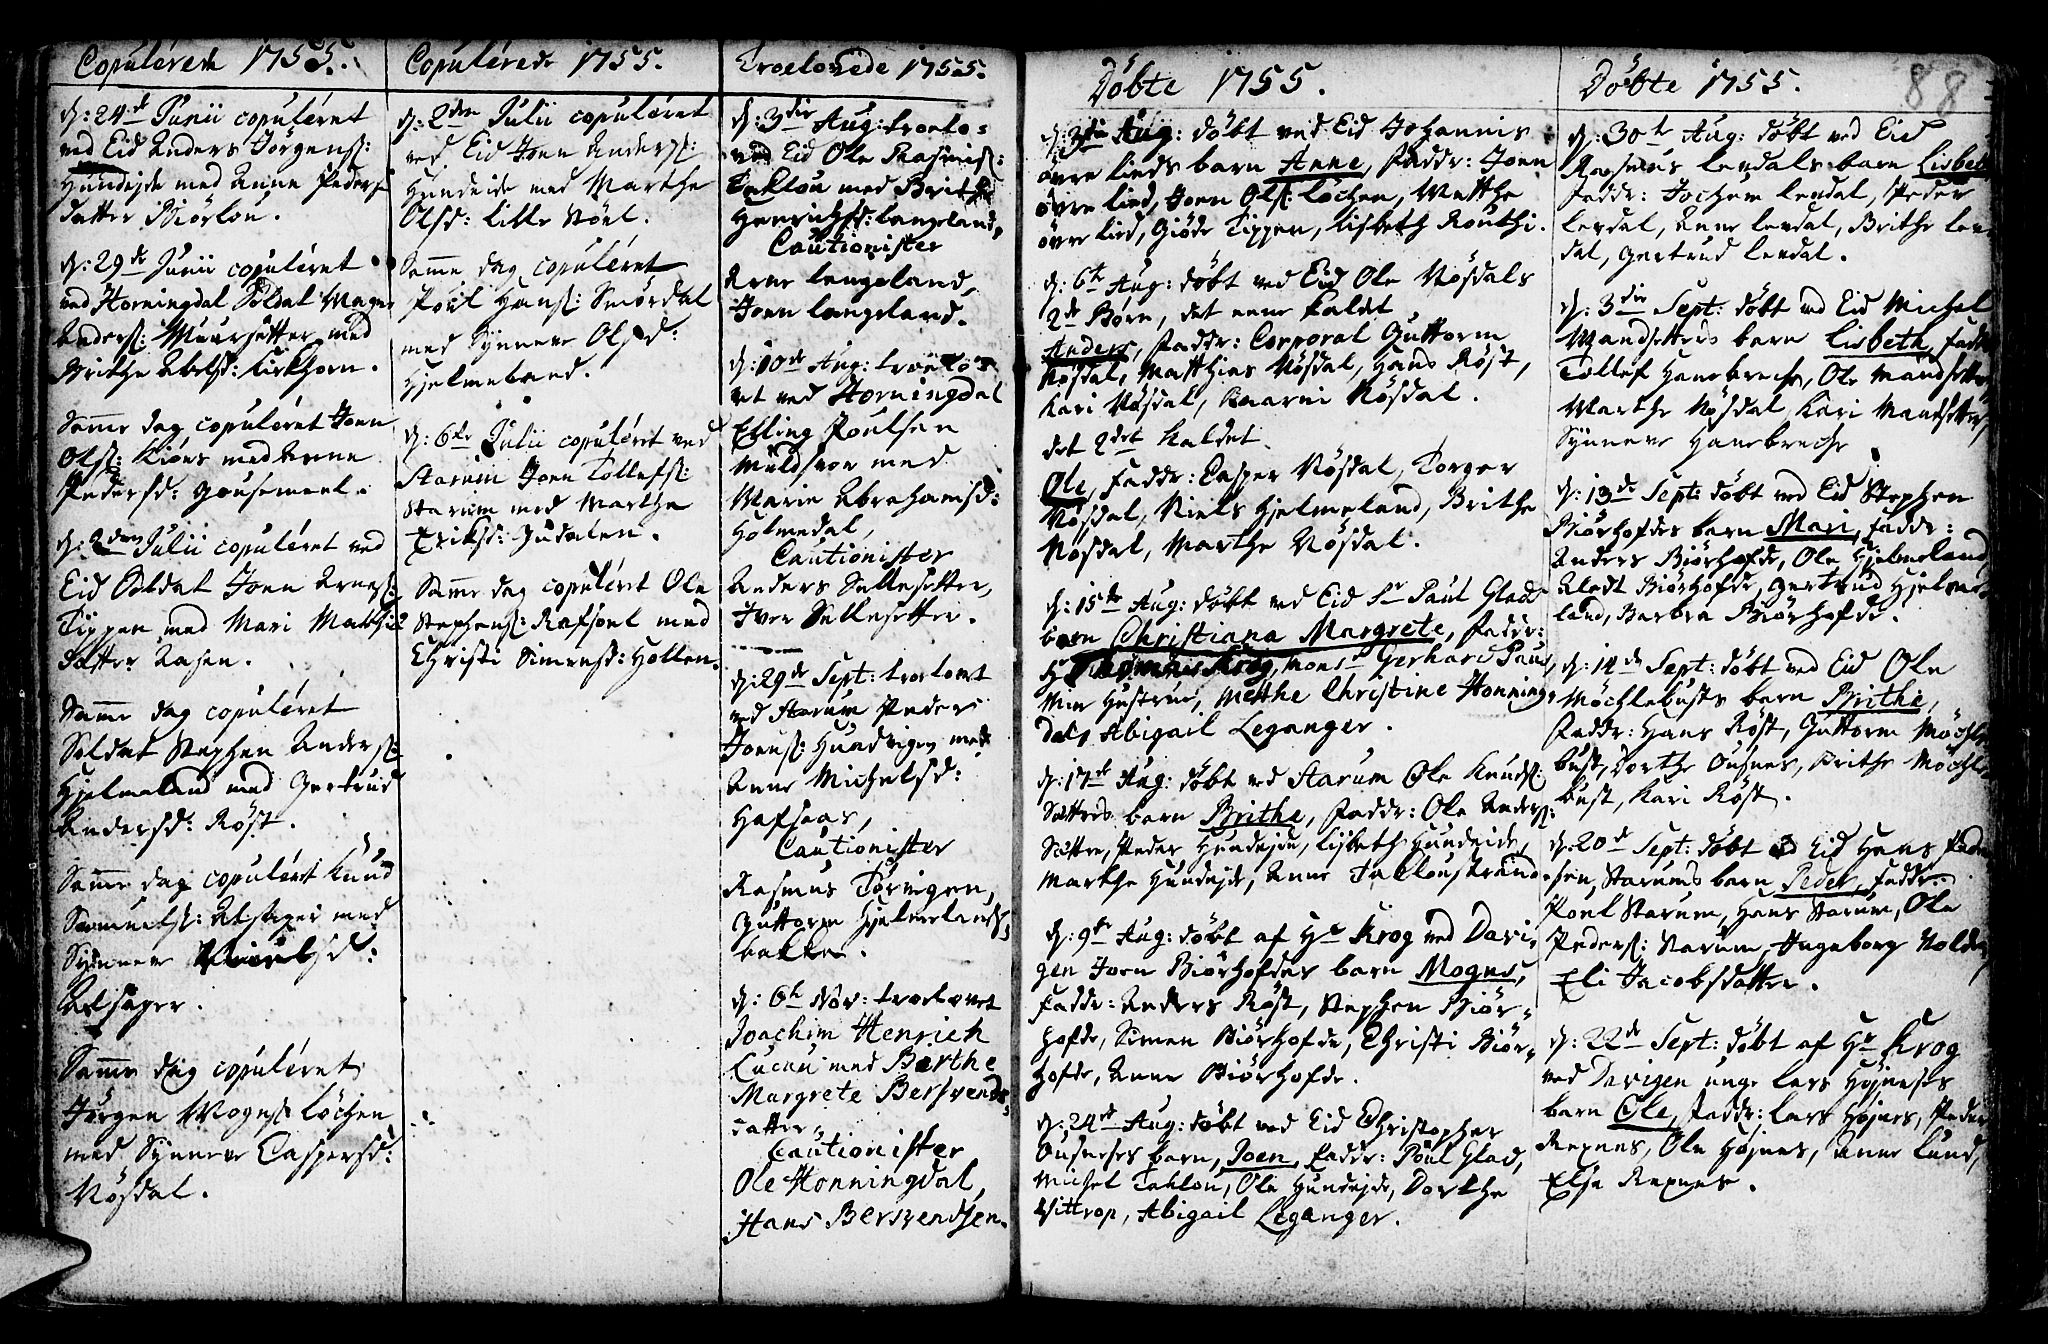 Copulérede 1755.
d: 24de Junii copuléret
ved Eid Anders Jörgens:
Hundejde med Anne Peders
datter Biörlou.
d: 29de Junii copuléret
ved Horningdal Soldat Magne
Anders: Muursetter med
Brithe Abelsd: Kirkhorn.
Samme dag copuléret Joen
Ols: Kiöns med Anne
Pedersd: Gousemeel.
d: 2den Julii copuléret ved
Eid Soldat Joen Arnes:
Tippen med Mari Matthis
datter Aasen.
Samme dag copuléret
Soldat Stephen Anders:
Hjelmeland med Gertrud
Andersd: Röst.
Samme dag copuléret Knud
Samuels: Alsager med
Synneve
Alsager.
Samme dag copuléret
Jörgen Mogns: Löchen
med Synneve Caspersd:
Nösdal.
Copulérede 1755.
d: 2den Julii copuléret
ved Eid Joen Anders:
Hundeide med Marthe
Olsd: lille Nöel.
Samme dag copuléret
Poul Hans: Smördal
med Synneve Olsd:
Hjelmeland.
d: 6te Julii copuléret ved
Starum Joen Tollefs:
Starum med Marthe
Eriksd: Hjudalen.
Samme dag copuléret Ole
Stephens: Rafsoel med
Christi Simensd: Hollen.
Troelovede 1755.
d: 3die Aug: troelo-
ved Eid Ole Rasmus:
Taklou med Brithe
Henrichsd: Langeland,
Cautionister
Arne Langeland,
Joen Langeland.
d: 10de Aug: troelo-
vet ved Horningdal
Elling Poulsen
Muldsvor med
Marie Abrahamsd:
Holmedal,
Cautionister
Anders Sellesetter,
Iver Sellesetter.
d: 29de Sept: troelovet
ved Starum Peder
Joens: Hundvigen med
Anne Michelsd:
Hafsaas,
Cautionister
Rasmus Törningen,
Guttorm Hjelmelands-
bakken.
d: 6te Nov: troelovet
Joachim Henrich
Lucau med Berthe
Margrete Bersvends
datter,
Cautionister
Ole Honningdal,
Hans Bersvendsen.
Döbte 1755.
d: 3die Aug: döbt ved Eid Johannis
övre Lieds barn Anne, Faddr: Joen
övre Lied, Joen Ols: Löchen, Matthe
övre Lied, Giöde Tippen, Lisbeth Routhi.
d: 6te Aug: döbt ved Eid Ole Nösdals
2de Börn, det enne kaldet
Anders, Faddr: Corporal Guttorm
Nösdal, Matthias Nösdal, Hans Röst,
Kari Nösdal, Karni Nösdal.
det 2det kaldet
Ole, Faddr: Casper Nösdal, Torger
Nösdal, Niels Hjelmeland, Brithe
Nösdal, Marthe Nösdal.
d: 15de Aug: döbt ved Eid Sr Paul Glads
barn Christiana Margrete, Faddr:
Hr Krog, Mons Gerhard Paus,
Min Hustrue, Metthe Christine Honning-
dal, Abigail Leganger.
d: 17de Aug: döbt ved Starum Ole Knuds:
Sættres barn Brithe, Faddr: Ole Anders:
Sættre, Peder Hundejde, Lisbeth Hundeide,
Marthe Hundejde, Anne Takloustrand.
d: 9de Aug: döbt af Hr Krog ved Davi-
gen Joen Biörhofdes barn Mogns,
Faddr: Anders Röst, Stephen Biör-
hofde, Simen Biörhofde, Christi Biör-
hofde, Anne Biörhofde.
d: 24de Aug: döbt ved Eid Christopher
Ousneses barn, Joen, Faddr: Poul Glad,
Michel Taklou, Ole Hundejde, Dorthe
Vittrop, Abigail Leganger.
Döbte 1755.
88
d: 30te Aug: döbt ved Eid
Rasmus Levdals barn Lisbeth
Faddr: Jochem Levdal, Peder
Levdal, Anne Levdal, Brithe Lev-
dal, Gertrud Levdal.
d: 3die Sept: döbt ved Eid Michel
Mandsetters barn Lisbeth, Faddr
Tollef Hanebreche, Ole Mandsetter,
Marthe Nösdal, Kari Mandsetter,
Synneve Hanebreche
d: 13de Sept: döbt ved Eid Stephen
Biörhofdes barn Mari, Faddr:
Anders Biörhofde, Ole Hjelmeland,
Aledt Biörhofde, Gertrud Hjelme-
land, Barbra Biörhofde.
d: 14de Sept: döbt ved Eid Ole
Möchlebusts barn Brithe,
Faddr: Hans Röst, Guttorm Möchle-
bust, Dorthe Ousnes, Brithe Möchle-
bust, Kari Röst.
d: 20de Sept: döbt ved Eid Hans Peder-
sen, Starums barn Peder, Faddr:
Poul Starum, Hans Starum, Ole
Peders: Starum, Ingeborg Nolde,
Eli Jacobsdatter.
d: 22de Sept: döbt af Hr Krog
ved Davigen unge Lars Höjneses
barn Ole, Faddr: Lars Höjnes, Peder
Rexnes, Ole Höjnes, Anne Lund,
Else Rexnes.